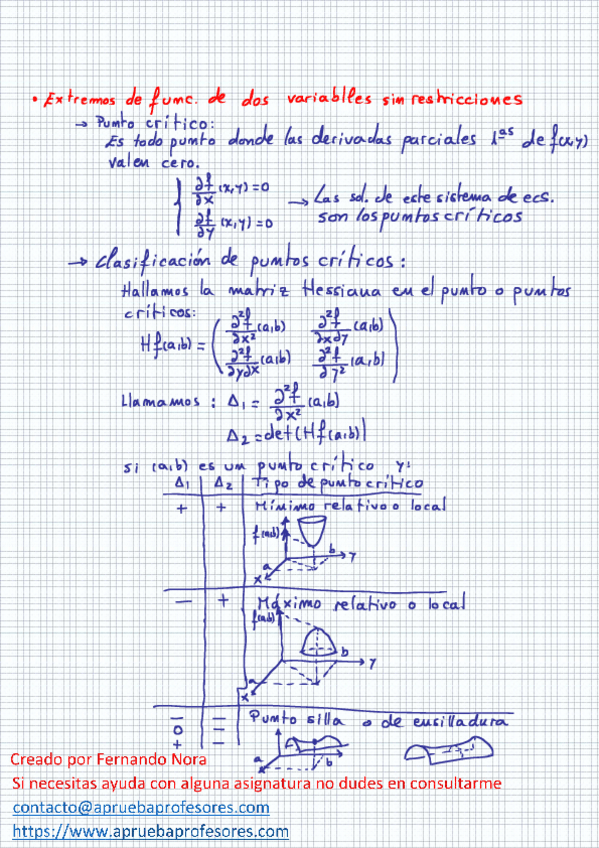 • Extremos de func. de dos variablles sin restricciones
→ Punto crítico:
Es todo punto donde las derivadas parciales 1ªˢ de f(x,y)
valen cero.
∂f/∂x (x,y)=0
∂f/∂y (x,y)=0
→ Las sol. de este sistema de ecs.
son los puntos críticos
→ Clasificación de puntos críticos:
Hallamos la matriz Hessiana en el punto o puntos
críticos:
Hf(a,b) = ( ∂²f/∂x² (a,b) ∂²f/∂x∂y (a,b)
∂²f/∂y∂x (a,b) ∂²f/∂y² (a,b) )
Llamamos: Δ₁ = ∂²f/∂x² (a,b)
Δ₂ = det(Hf(a,b))
si (a,b) es un punto crítico y:
Δ₁ | Δ₂ | Tipo de punto crítico
+ | + | Mínimo relativo o local
f(a,b)
a b y
x
− | + | Máximo relativo o local
f(a,b)
a b y
x
− | − | Punto silla o de ensilladura
0 | −
+ | −
a b
Creado por Fernando Nora
Si necesitas ayuda con alguna asignatura no dudes en consultarme
contacto@apruebaprofesores.com
https://www.apruebaprofesores.com